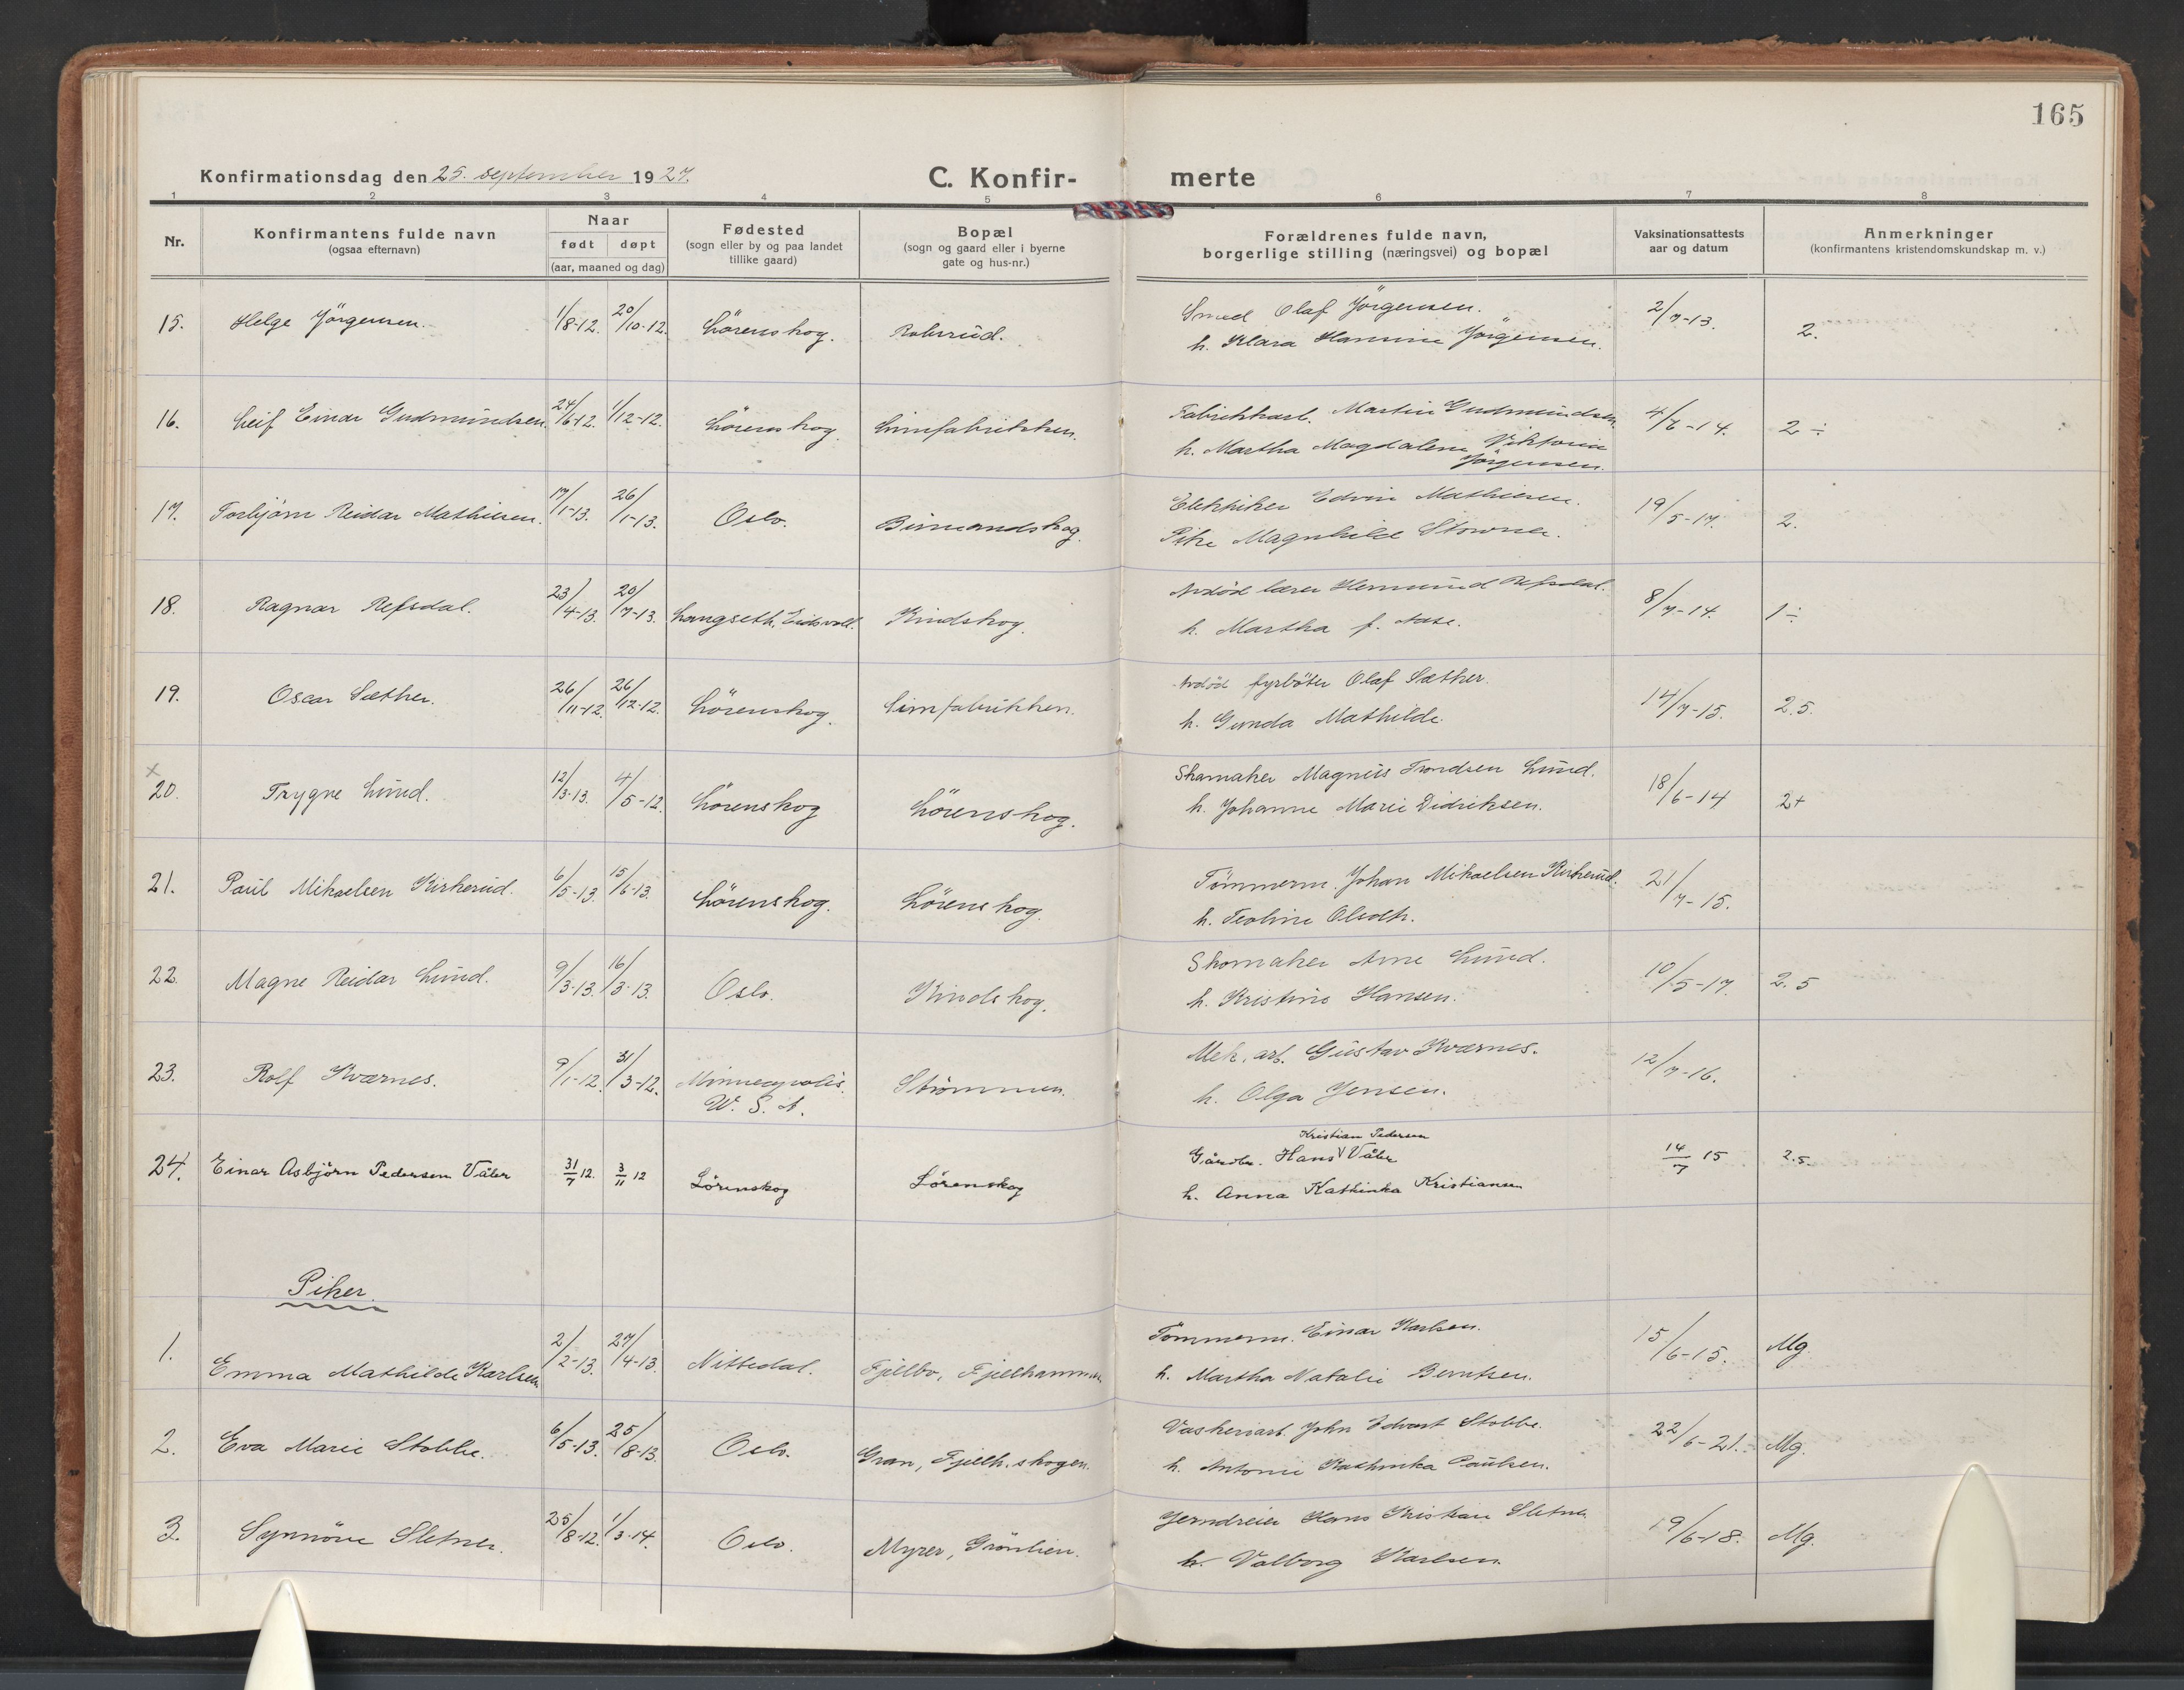 165
Konfirmationsdag den 25. september 1927.
C. Konfirmerte
1 2 3 4 5 6 7 8
Nr.
Konfirmantens fulde navn
(ogsaa efternavn)
Naar
født døpt
(aar, maaned og dag)
Fødested
(sogn eller by og paa landet
tillike gaard)
Bopæl
(sogn og gaard eller i byerne
gate og hus-nr.)
Forældrenes fulde navn,
borgerlige stilling (næringsvei) og bopæl
Vaksinationsattests
aar og datum
Anmerkninger
(konfirmantens kristendomskundskap m. v.)
15. Helge Jörgensen. 1/8-12. 20/10-12. Lörenskog. Robsrud. Smed Olaf Jörgensen. 2/7-13. 2.
h. Klara Hannine Jörgensen.
16. Leif Einar Gudmundsen. 24/6-12. 1/12-12. Lörenskog. Limfabrikken. Fabrikkarb. Martin Gudmundsen. 4/7-14. 2 ÷
h. Martha Magdalene Viktoria
Jörgensen.
17. Torbjörn Reidar Mathiesen. 17/1-13. 26/1-13. Oslo. Bimandskog. Elektriker Edvin Mathiesen. 19/5-17. 2.
Pike Magnhild Stovner.
18. Ragnar Refsdal. 23/4-13. 20/7-13. Langseth, Eidsvoll. Kindskog. Avdöd lærer Hermund Refsdal. 8/7-14. 1 ÷
h. Martha f. Aase.
19. Oscar Sæther. 26/11-12. 26/12-12. Lörenskog. Limfabrikken. Avdöd fyrböter Olaf Sæther. 14/7-15. 2.5.
h. Gunda Mathilde.
x
20. Trygve Lund. 12/3-13. 4/5-12. Lörenskog Lörenskog. Skomaker Magnus Trondsen Lund. 18/6-14 2+
h. Johanne Marie Didriksen.
21. Paul Mikaelsen Kirkerud. 6/5-13. 15/6-13. Lörenskog. Lörenskog. Tömmerm. Johan Mikaelsen Kirkerud. 21/7-15.
h. Teoline Olsdtr.
22. Magne Reidar Lund. 9/3-13. 16/3-13. Oslo. Kindskog. Skomaker Arne Lund. 10/5-17. 2.5
h. Kristine Hansen.
23. Rolf Kværnes. 9/1-12. 31/3-12. Minneapolis. Strömmen. Mek. arb. Gustav Kværnes. 12/7-16.
U. S. A. h. Olga Jensen.
Kristian Pedersen
24. Einar Asbjörn Pedersen Våler 31/7 12. 3/11 12 Lörenskog Lörenskog Gårdbr. Hans V Våler 14/7 15 2.5.
h. Anna Kathinka Kristiansen
Piker.
1. Emma Mathilde Karlsen 2/2-13. 27/4-13. Nittedal. Fjellbo, Fjellhammer Tömmerm. Einar Karlsen. 15/6-15. Mg.
h. Martha Natalie Berntsen.
2. Eva Marie Stobbe. 6/5-13. 25/8-13. Oslo. Gran, Fjellh. skogen. Vaskeriarb. John Edvart Stobbe. 22/6-21. Mg.
h. Antonie Kathinka Paulsen.
3. Synnöve Sletner. 25/8-12. 1/3-14. Oslo. Myrer, Grönlien. Jerndreier Hans Kristian Sletner. 19/6-18. Mg.
h. Valborg Karlsen.